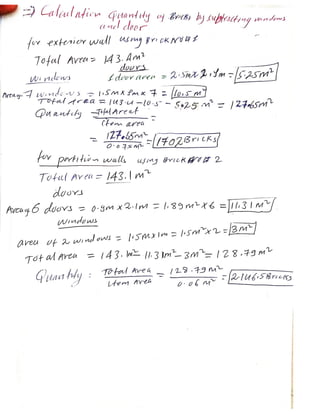 =) Calculation Quantity of Bricks by subtracting windows
and door
for exterior wall using Brick
Total Area = 143.4m²
doors
windows 1 door area = 2.5m×2.1m = 5.25m²
Area of 7 windows = 1.5m×1m×7 = 10.5m²
Total Area = 143.4-10.5 - 5.25m² = 127.65m²
Quantity = Total Area / item area
= 127.65m² / 0.075m² = 1702 Bricks
for partition walls using Brick 2
Total Area = 143.1m²
doors
Area of 6 doors = 0.9m×2.1m = 1.89m²×6 = 11.31m²
windows
area of 2 windows = 1.5m×1m = 1.5m²×2 = 3m²
Total Area = 143.1m² - 11.31m² - 3m² = 128.79m²
Quantity: Total Area / item Area = 128.79m² / 0.06m² = 2146.5 Bricks